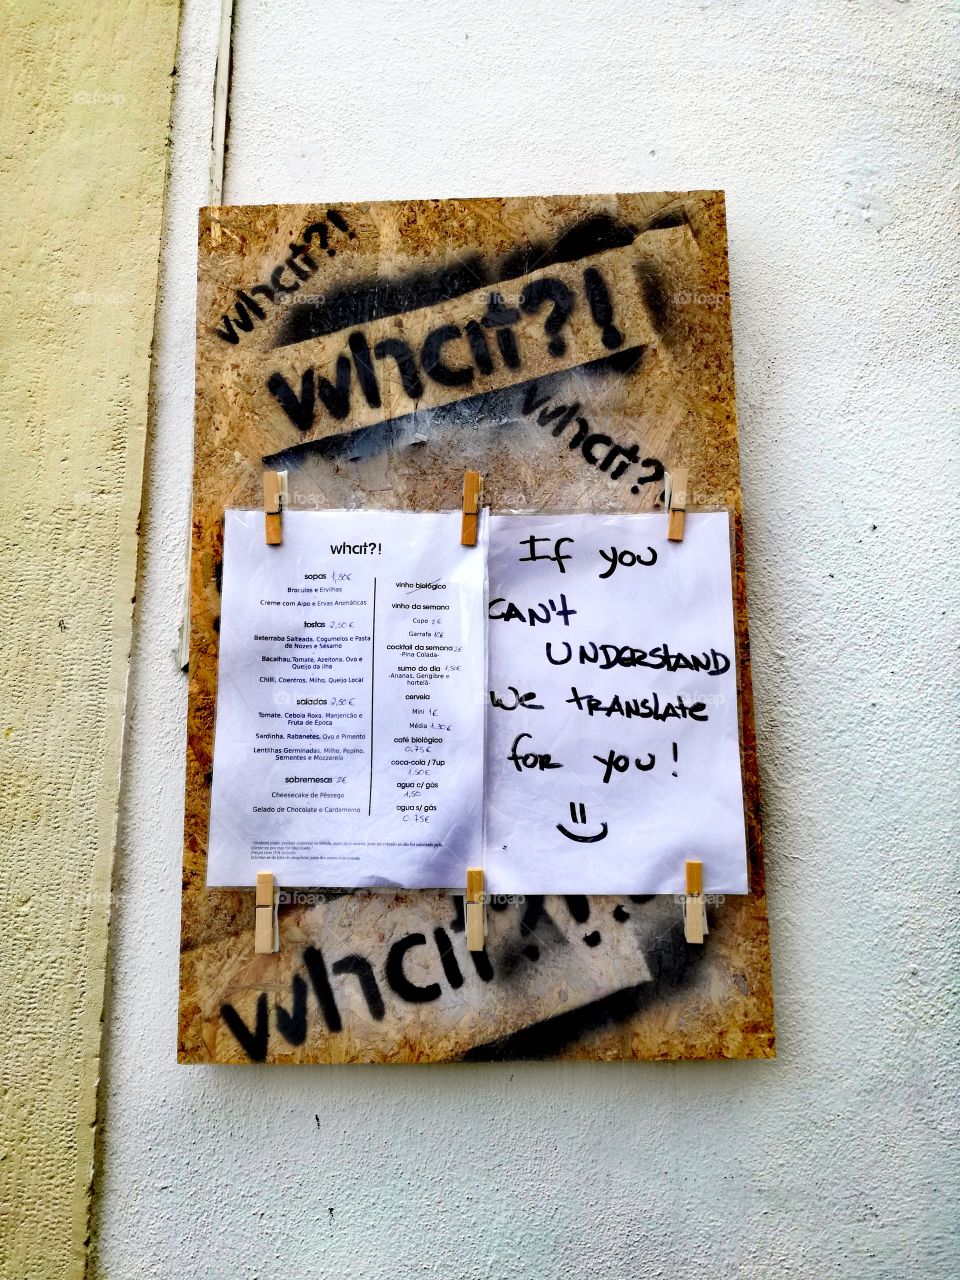 what?!
what?!
what?!
what?!
sopas 1,50€
Broculos e Ervilhas
Creme com Aipo e Ervas Aromáticas
tostas 2,50€
Beterraba Salteada, Cogumelos e Pasta
de Nozes e Sésamo
Bacalhau, Tomate, Azeitona, Ovo e
Queijo da ilha
Chilli, Coentros, Milho, Queijo Local
saladas 2,50€
Tomate, Cebola Roxa, Manjericão e
Fruta de Época
Sardinha, Rabanetes, Ovo e Pimento
Lentilhas Germinadas, Milho, Pepino,
Sementes e Mozzarela
sobremesas 2€
Cheesecake de Pêssego
Gelado de Chocolate e Cardamomo
vinho biológico
vinho da semana
Copo 2€
Garrafa 10€
cocktail da semana 2€
-Pina Colada-
sumo do dia 1,50€
-Ananas, Gengibre e
hortelã-
cerveja
Mini 1€
Média 1.30€
café biológico
0,75€
coca-cola / 7up
1.50€
agua c/ gás
1,50
agua s/ gás
0.75€
If you
CAN't
UNDERSTAND
We tRANSLAte
foR you!
what?!